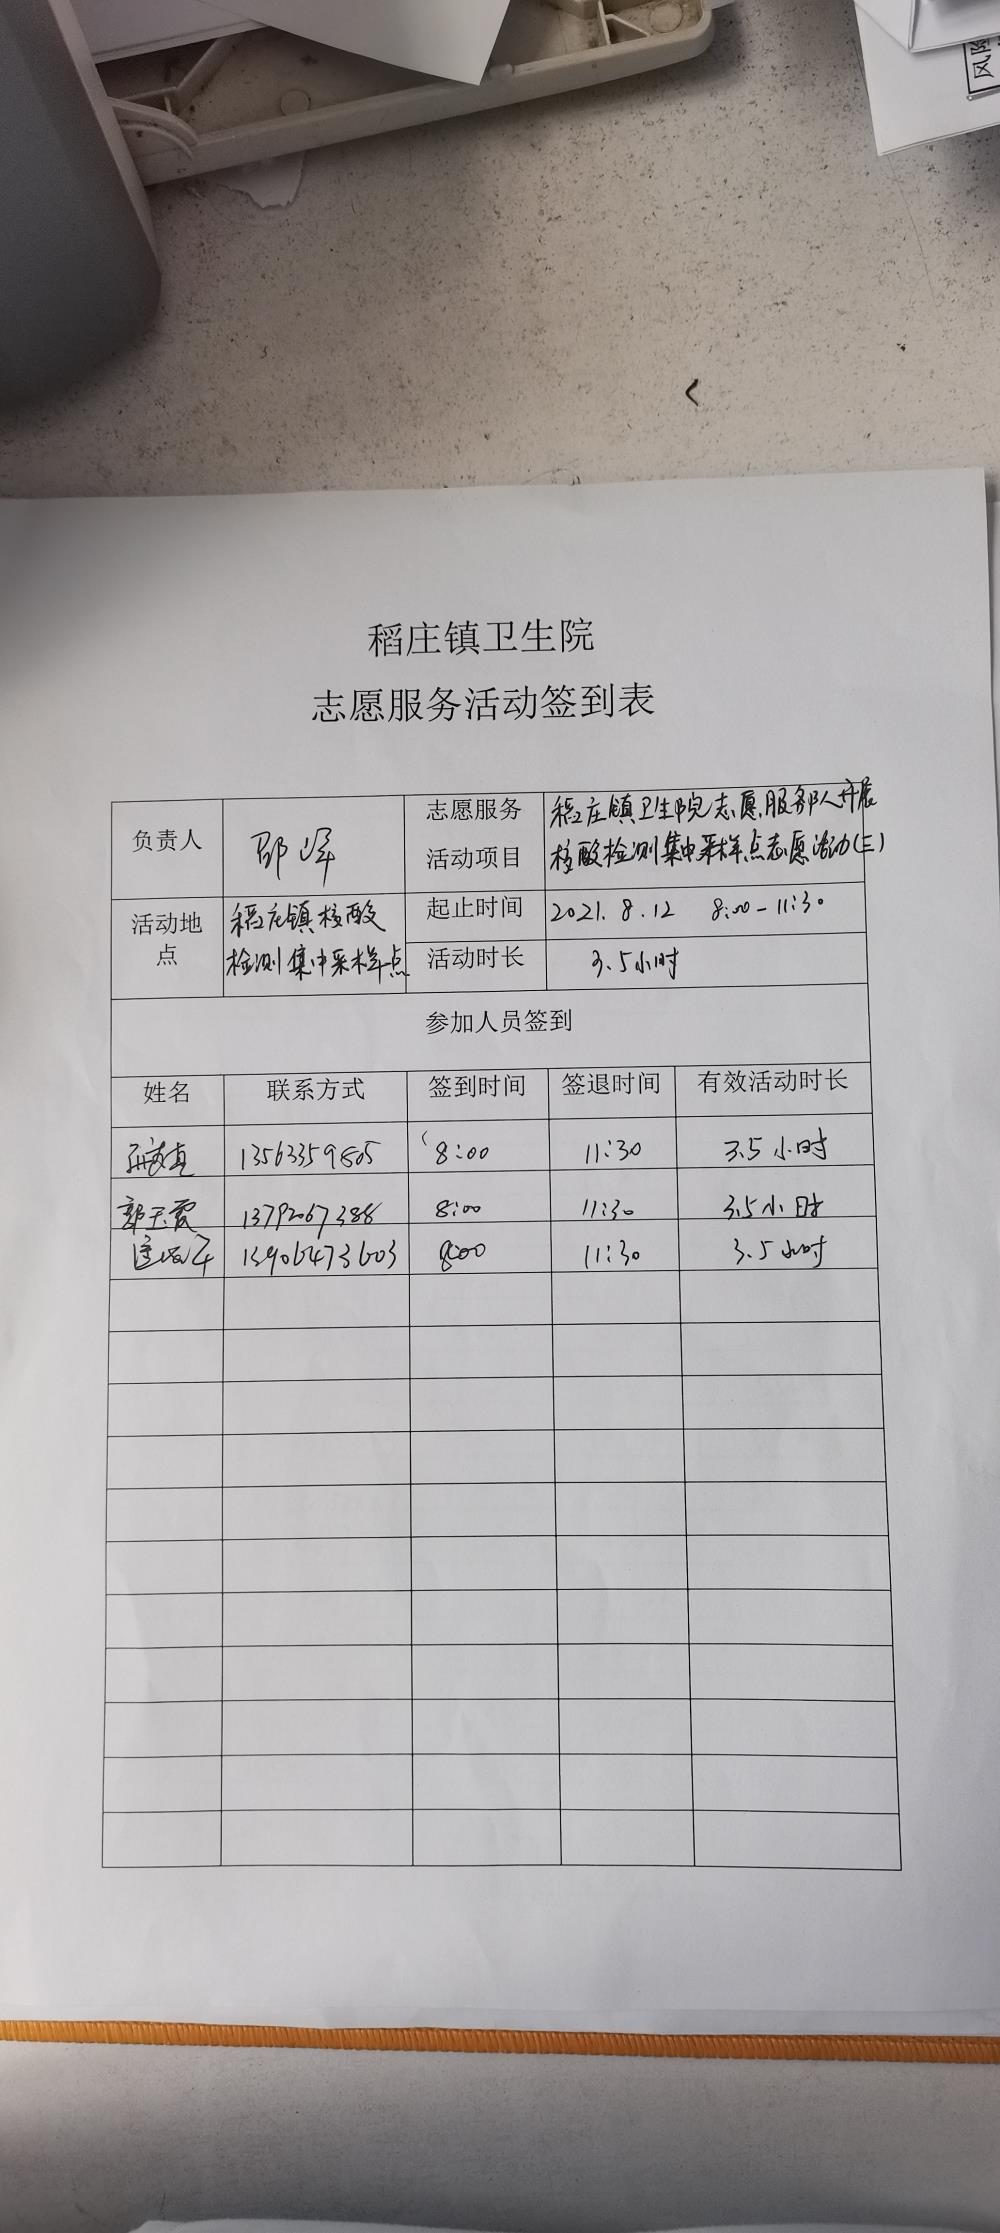 风险
稻庄镇卫生院
志愿服务活动签到表
负责人
志愿服务
活动项目
稻庄镇卫生院志愿服务队开展
核酸检测集中采样点志愿活动(三)
活动地
点
稻庄镇核酸
检测集中采样点
起止时间
2021.8.12 8:00-11:30
活动时长
3.5小时
参加人员签到
姓名 联系方式 签到时间 签退时间 有效活动时长
13563359805 8:00 11:30 3.5小时
郭玉霞 13792067388 8:00 11:30 3.5小时
13906473603 8:00 11:30 3.5小时